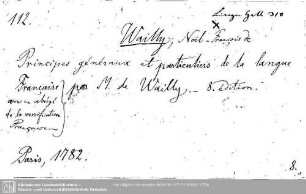 112. Ling. Gall. 310
x
Wailly, Noël-François de
Principes généraux et particuliers de la langue
Française par M. de Wailly _ 8. Edition.
avec un abrégé
de la versification
Paris, 1782.
8.
Sächsische Landesbibliothek /
Staats- und Universitätsbibliothek Dresden